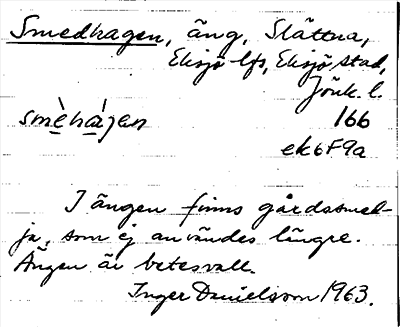 Smedhagen, äng, Slättna,
Eksjö lfs, Eksjö stad,
Jönk. l.
smèhàgen 166
ek 6F9a
I ängen finns gårdssmed-
ja, som ej användes längre.
Ängen är betesvall.
Inger Danielsson 1963.